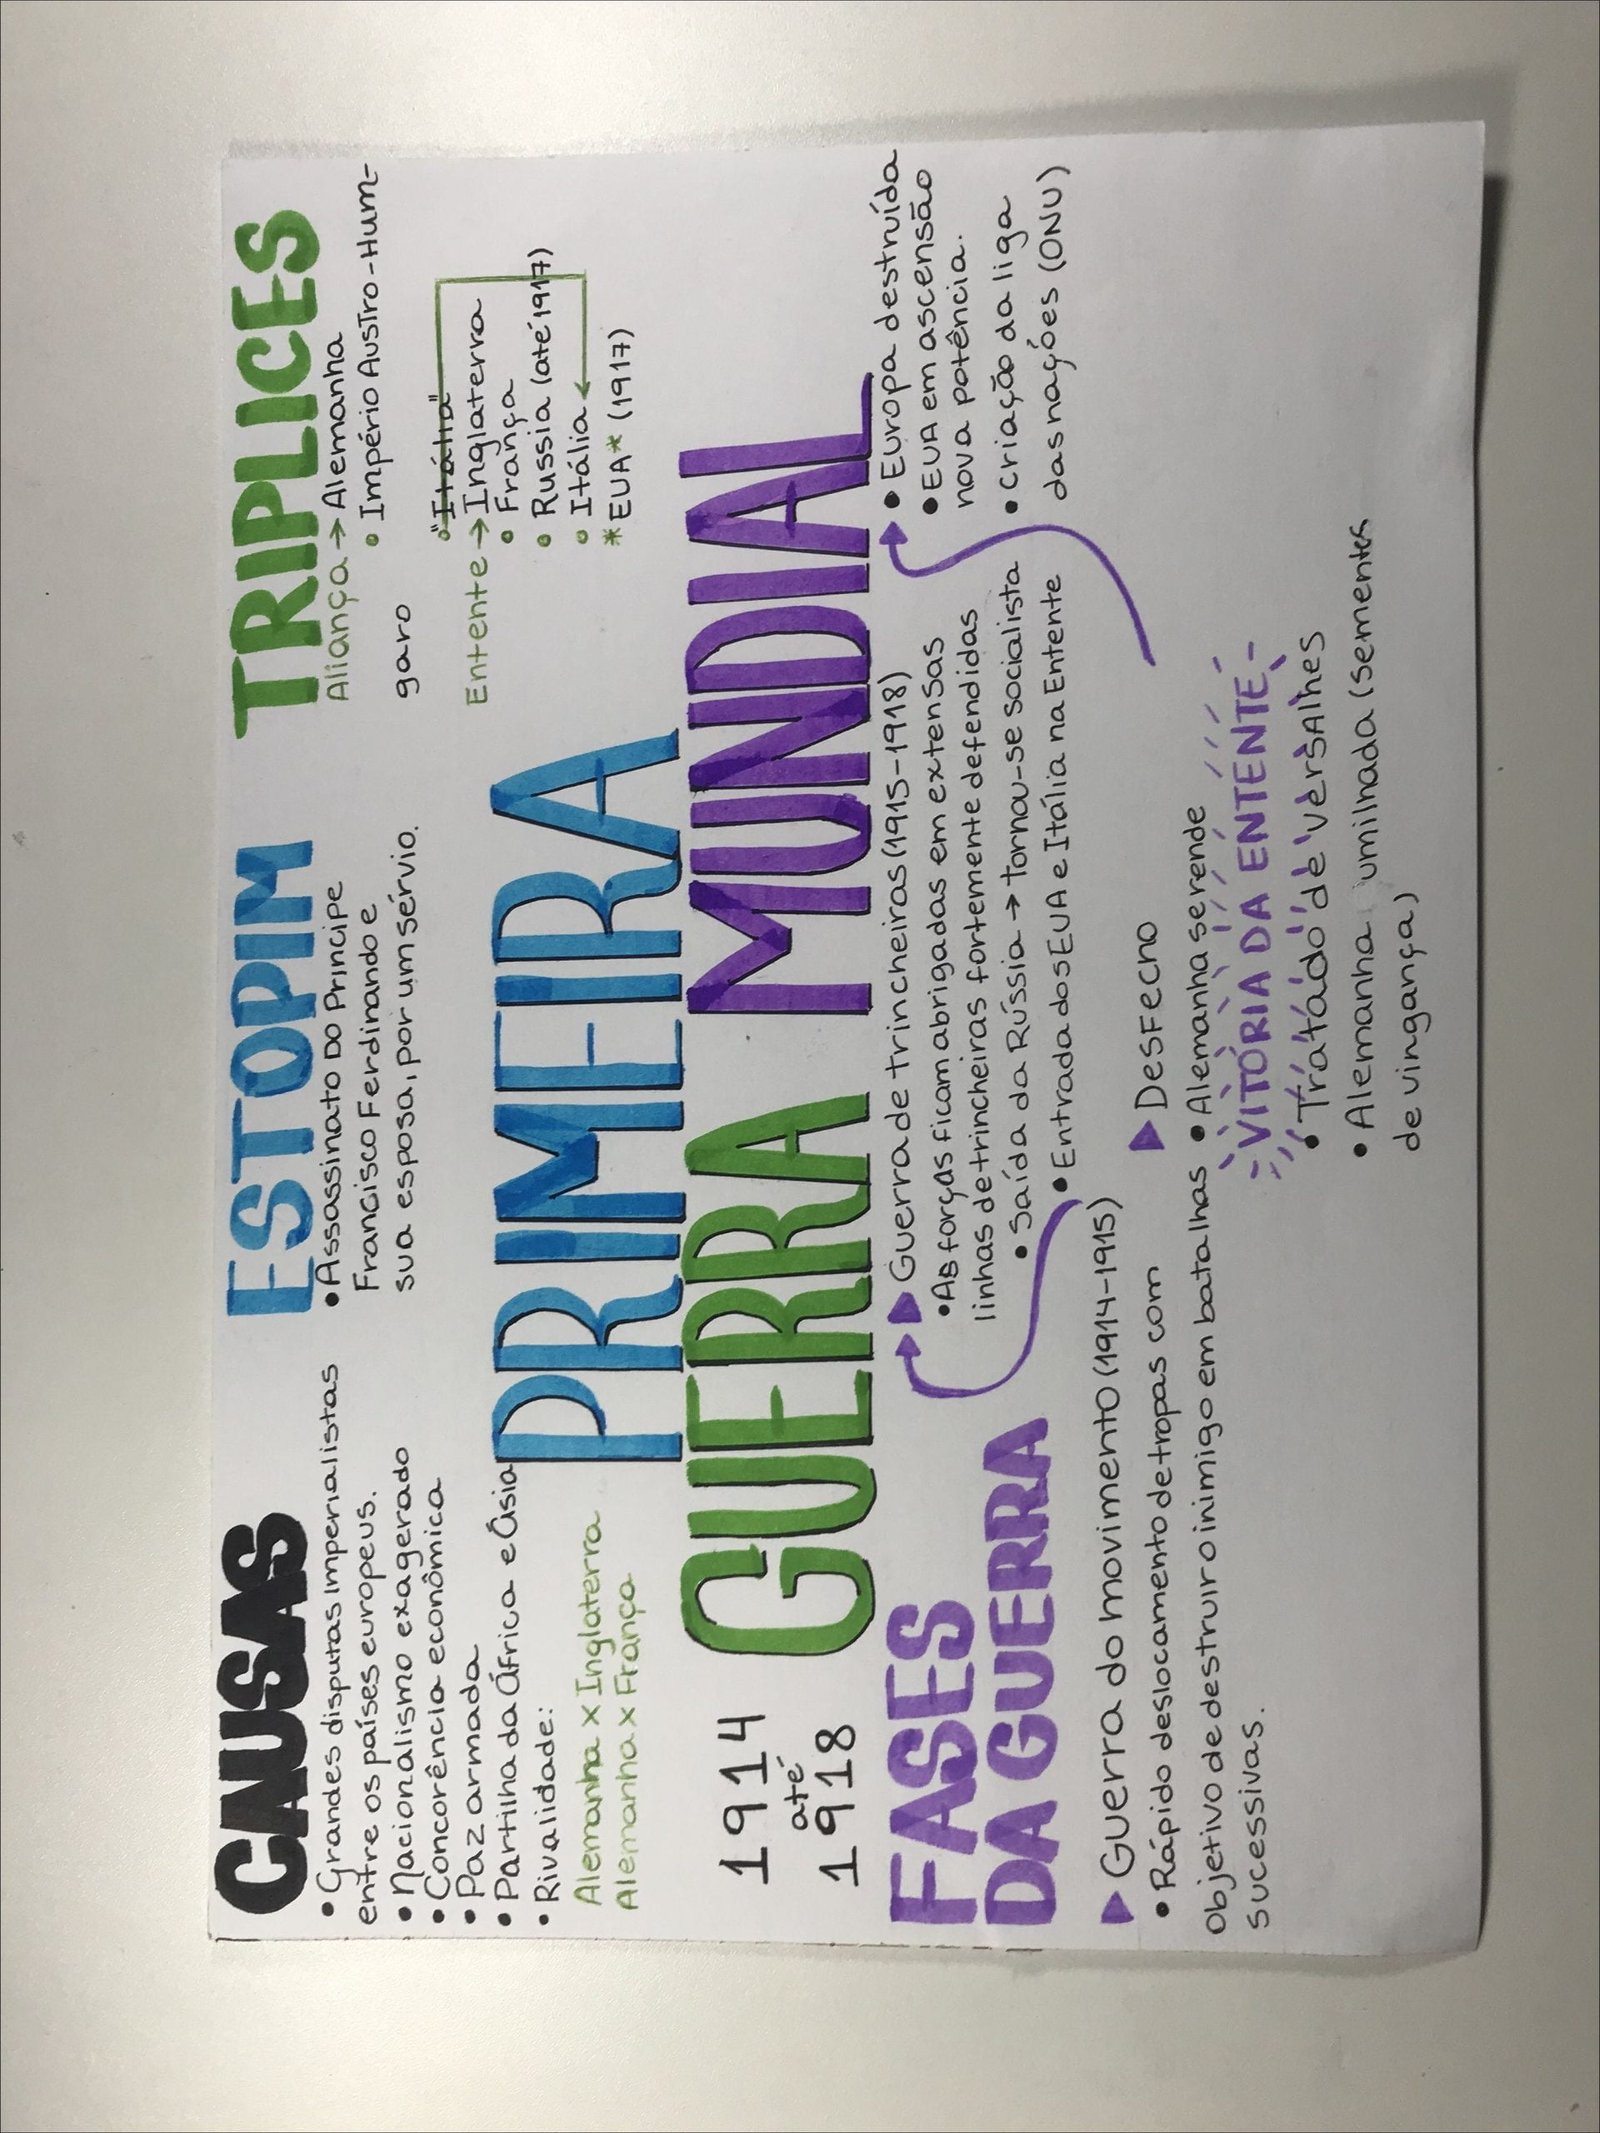 CAUSAS
• Grandes disputas Imperialistas
entre os países europeus.
• Nacionalismo exagerado
• Concorência econômica
• Paz armada
• Partilha da África e Ásia
• Rivalidade:
Alemanha x Inglaterra
Alemanha x França
ESTOPIM
• Assassinato Do Príncipe
Francisco Ferdinando e
sua esposa, por um sérvio.
TRIPLICES
Aliança → Alemanha
• Império Austro-Hum-
garo
• "Itália"
Entente → Inglaterra
• França
• Russia (até 1917)
• Itália
* EUA * (1917)
PRIMEIRA
GUERRA MUNDIAL
1914
até
1918
FASES
DA GUERRA
▶ Guerra do movimento (1914-1915)
• Rápido deslocamento de tropas com
Objetivo de destruir o inimigo em batalhas
sucessivas.
▶ Guerra de trincheiras (1915-1918)
• As forças ficam abrigadas em extensas
linhas de trincheiras fortemente defendidas
• Saída da Rússia → Tornou-se socialista
• Entrada dos EUA e Itália na Entente
▶ Desfecho
• Alemanha se rende
VITÓRIA DA ENTENTE
• Tratado de Versalhes
• Alemanha umilhada (sementes
de vingança)
• Europa destruída
• EUA em ascensão
nova potência.
• Criação da liga
das nações (ONU)